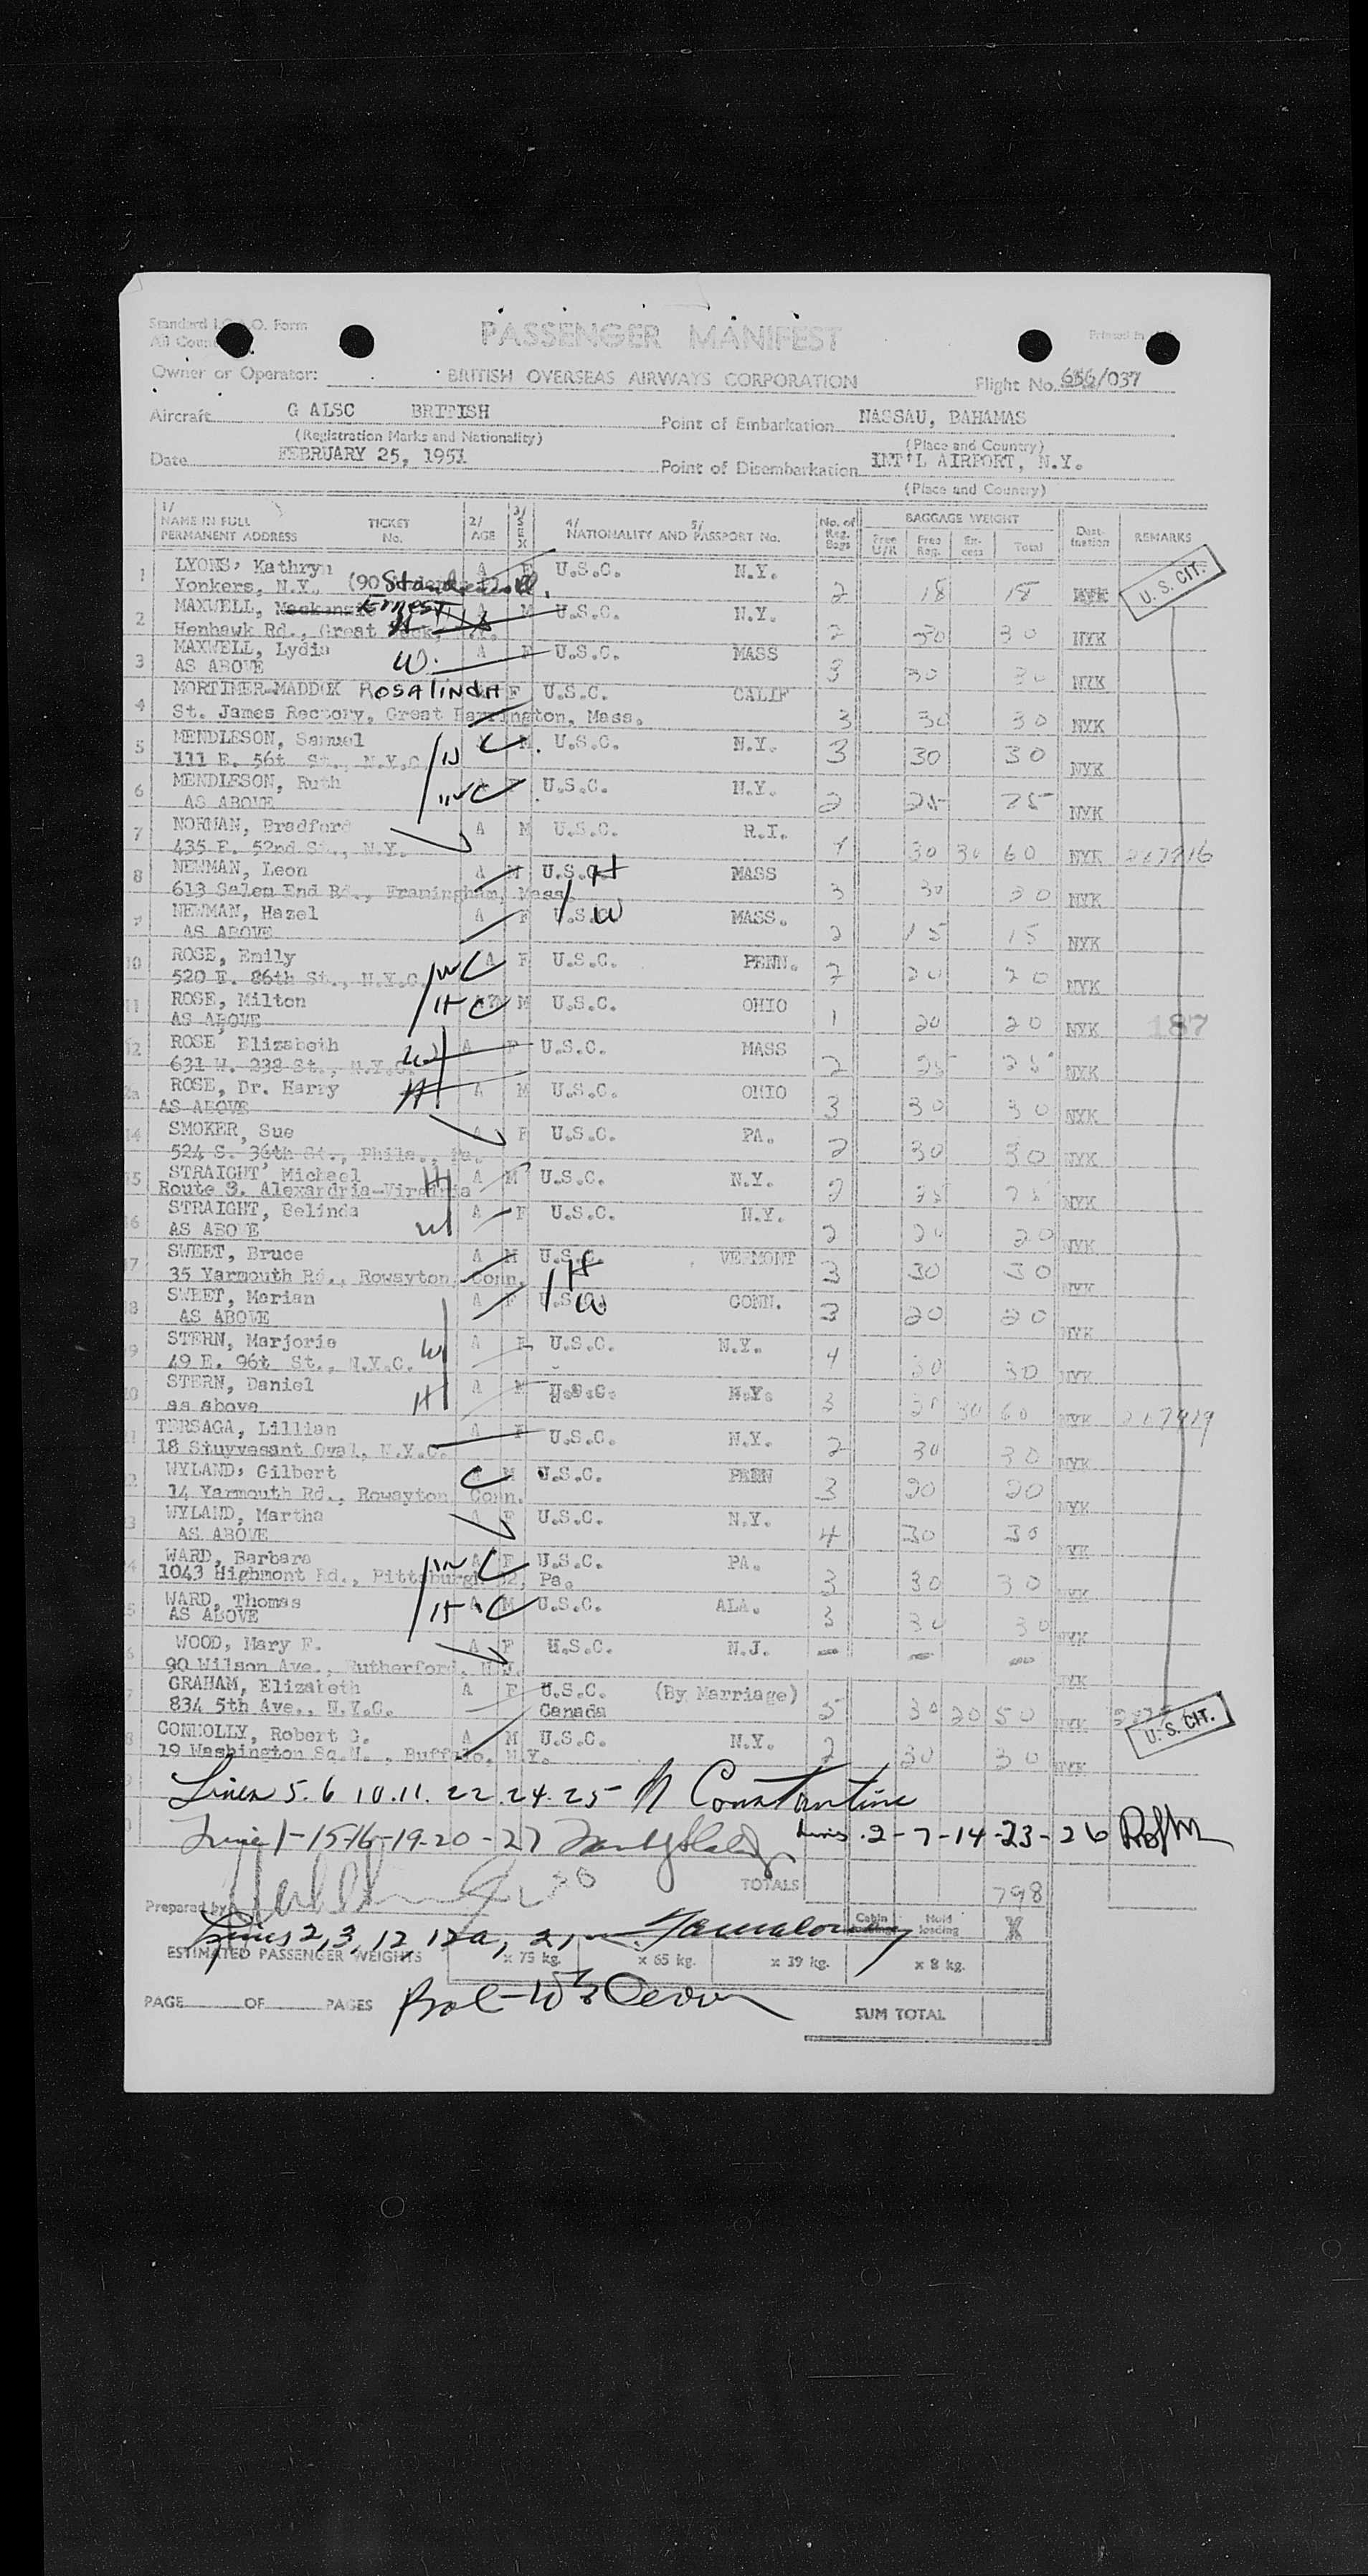 Standard I.C.A.O. Form
PASSENGER MANIFEST
Printed in
All Coun
Owner or Operator: BRITISH OVERSEAS AIRWAYS CORPORATION Flight No. 656/037
Aircraft G ALSC BRITISH Point of Embarkation NASSAU, BAHAMAS
(Registration Marks and Nationality) (Place and Country)
Date FEBRUARY 25, 1951 Point of Disembarkation INT'L AIRPORT, N.Y.
(Place and Country)
1/ NAME IN FULL PERMANENT ADDRESS TICKET No. 2/ AGE 3/ SEX 4/ NATIONALITY AND 5/ PASSPORT No. No. of Reg. Bags BAGGAGE WEIGHT Free U/K Free Reg. Ex-cess Total Dest-ination REMARKS
1 LYONS, Kathryn A F U.S.C. N.Y. 2 18 18 NYK U.S. CIT.
Yonkers, N.Y. (90
2 MAXWELL, Ernest A M U.S.C. N.Y. 2 30 30 NYK
Henhawk Rd., Great Neck, N.Y.
3 MAXWELL, Lydia W. A F U.S.C. MASS 3 30 30 NYK
AS ABOVE
4 MORTIMER-MADDOX ROSALINDA F U.S.C. CALIF 3 30 30 NYK
St. James Rectory, Great Barrington, Mass.
5 MENDLESON, Samuel M U.S.C. N.Y. 3 30 30 NYK
111 E. 56t St., N.Y.C
6 MENDLESON, Ruth U.S.C. N.Y. 2 25 25 NYK
AS ABOVE
7 NORMAN, Bradford A M U.S.C. R.I. 30 30 60 NYK
435 E. 52nd St., N.Y.
8 NEWMAN, Leon A M U.S.C. H MASS 3 30 30 NYK
613 Salem End Rd., Framingham, Mass.
9 NEWMAN, Hazel A F U.S.C. W MASS. 2 15 15 NYK
AS ABOVE
10 ROSE, Emily W C A F U.S.C. PENN. 2 20 20 NYK
520 E. 86th St., N.Y.C.
11 ROSE, Milton H C M U.S.C. OHIO 1 20 20 NYK 187
AS ABOVE
12 ROSE Elizabeth W A F U.S.C. MASS 2 25 25 NYK
631 W. 238 St., N.Y.C.
12a ROSE, Dr. Harry H A M U.S.C. OHIO 3 30 30 NYK
AS ABOVE
14 SMOKER, Sue A F U.S.C. PA. 2 30 30 NYK
524 S. 36th St., Phila., Pa.
15 STRAIGHT, Michael H A M U.S.C. N.Y. 2 25 25 NYK
Route 3. Alexandria-Virginia
16 STRAIGHT, Belinda W A F U.S.C. N.Y. 2 20 20 NYK
AS ABOVE
17 SWEET, Bruce A M U.S.C. H VERMONT 3 30 30 NYK
35 Yarmouth Rd., Rowayton, Conn.
18 SWEET, Marian A F U.S.C. W CONN. 3 20 20 NYK
AS ABOVE
19 STERN, Marjorie W A F U.S.C. N.Y. 4 30 30 NYK
49 E. 96t St., N.Y.C.
20 STERN, Daniel H A M U.S.C. N.Y. 3 30 30 60 NYK
as above
21 TERSAGA, Lillian A F U.S.C. N.Y. 2 30 30 NYK
18 Stuyvesant Oval, N.Y.C.
22 WYLAND, Gilbert C A M U.S.C. PENN 3 20 20 NYK
14 Yarmouth Rd., Rowayton Conn.
23 WYLAND, Martha A F U.S.C. N.Y. 4 30 30 NYK
AS ABOVE
24 WARD, Barbara W C A F U.S.C. PA. 3 30 30 NYK
1043 Highmont Rd., Pittsburgh 32, Pa.
25 WARD, Thomas H C A M U.S.C. ALA. 3 30 30 NYK
AS ABOVE
26 WOOD, Mary F. A F U.S.C. N.J. - - - NYK
90 Wilson Ave., Rutherford, N.J.
27 GRAHAM, Elizabeth A F U.S.C. (By Marriage) 5 30 20 50 NYK
834 5th Ave., N.Y.C. Canada U.S. CIT.
28 CONNOLLY, Robert G. A M U.S.C. N.Y. 2 30 30 NYK
19 Washington Sq.N., Buffalo, N.Y.
Lines 5. 6 10. 11. 22. 24. 25 N Constantine
Lines 1-15-16-19-20-27 Lines 2-7-14-23-26
TOTALS 798
Prepared by
Lines 2, 3, 12 12a, 21
Cabin loading Hold loading X
ESTIMATED PASSENGER WEIGHTS x 75 kg. x 65 kg. x 39 kg. x 8 kg.
PAGE OF PAGES Bal-
SUM TOTAL